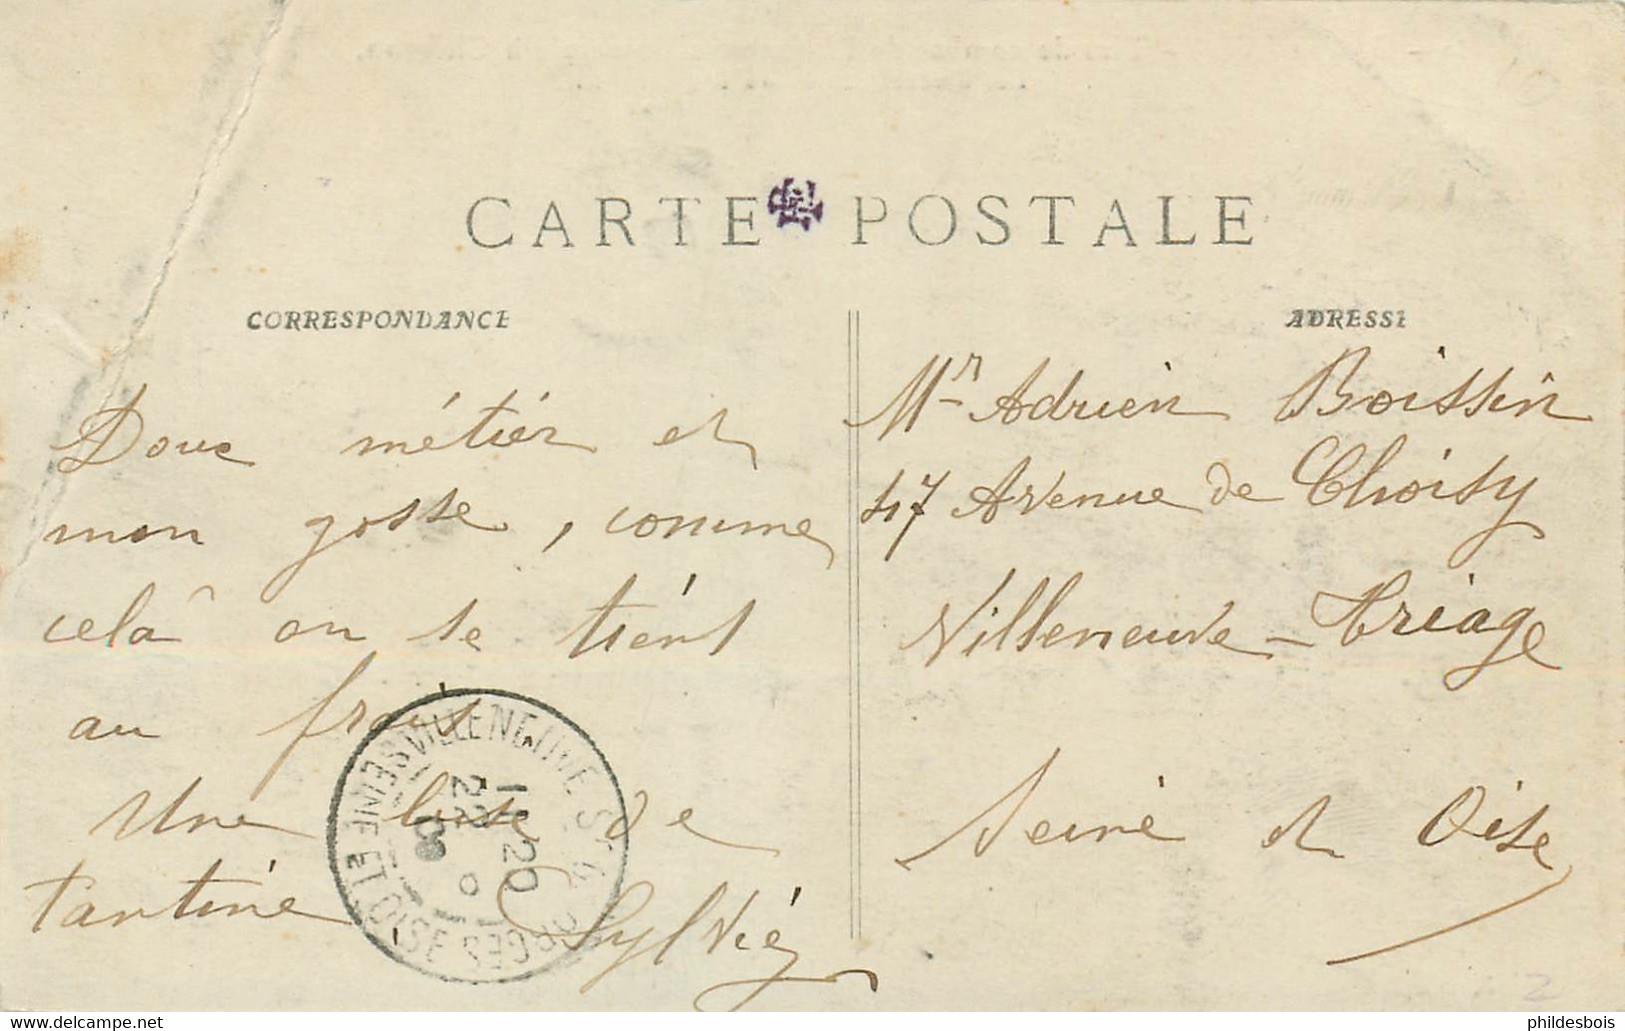 CARTE POSTALE
CORRESPONDANCE
Doux métier et
mon gosse, comme
celà on se tient
au frais
Une bise de
tantine Sylvie
ADRESSE
Mr Adrien Boissin
47 Avenue de Choisy
Villeneuve-triage
Seine et Oise
VILLENEUVE ST GEORGES
SEINE ET OISE
11 20
22
08
2
delcampe.net
phildesbois